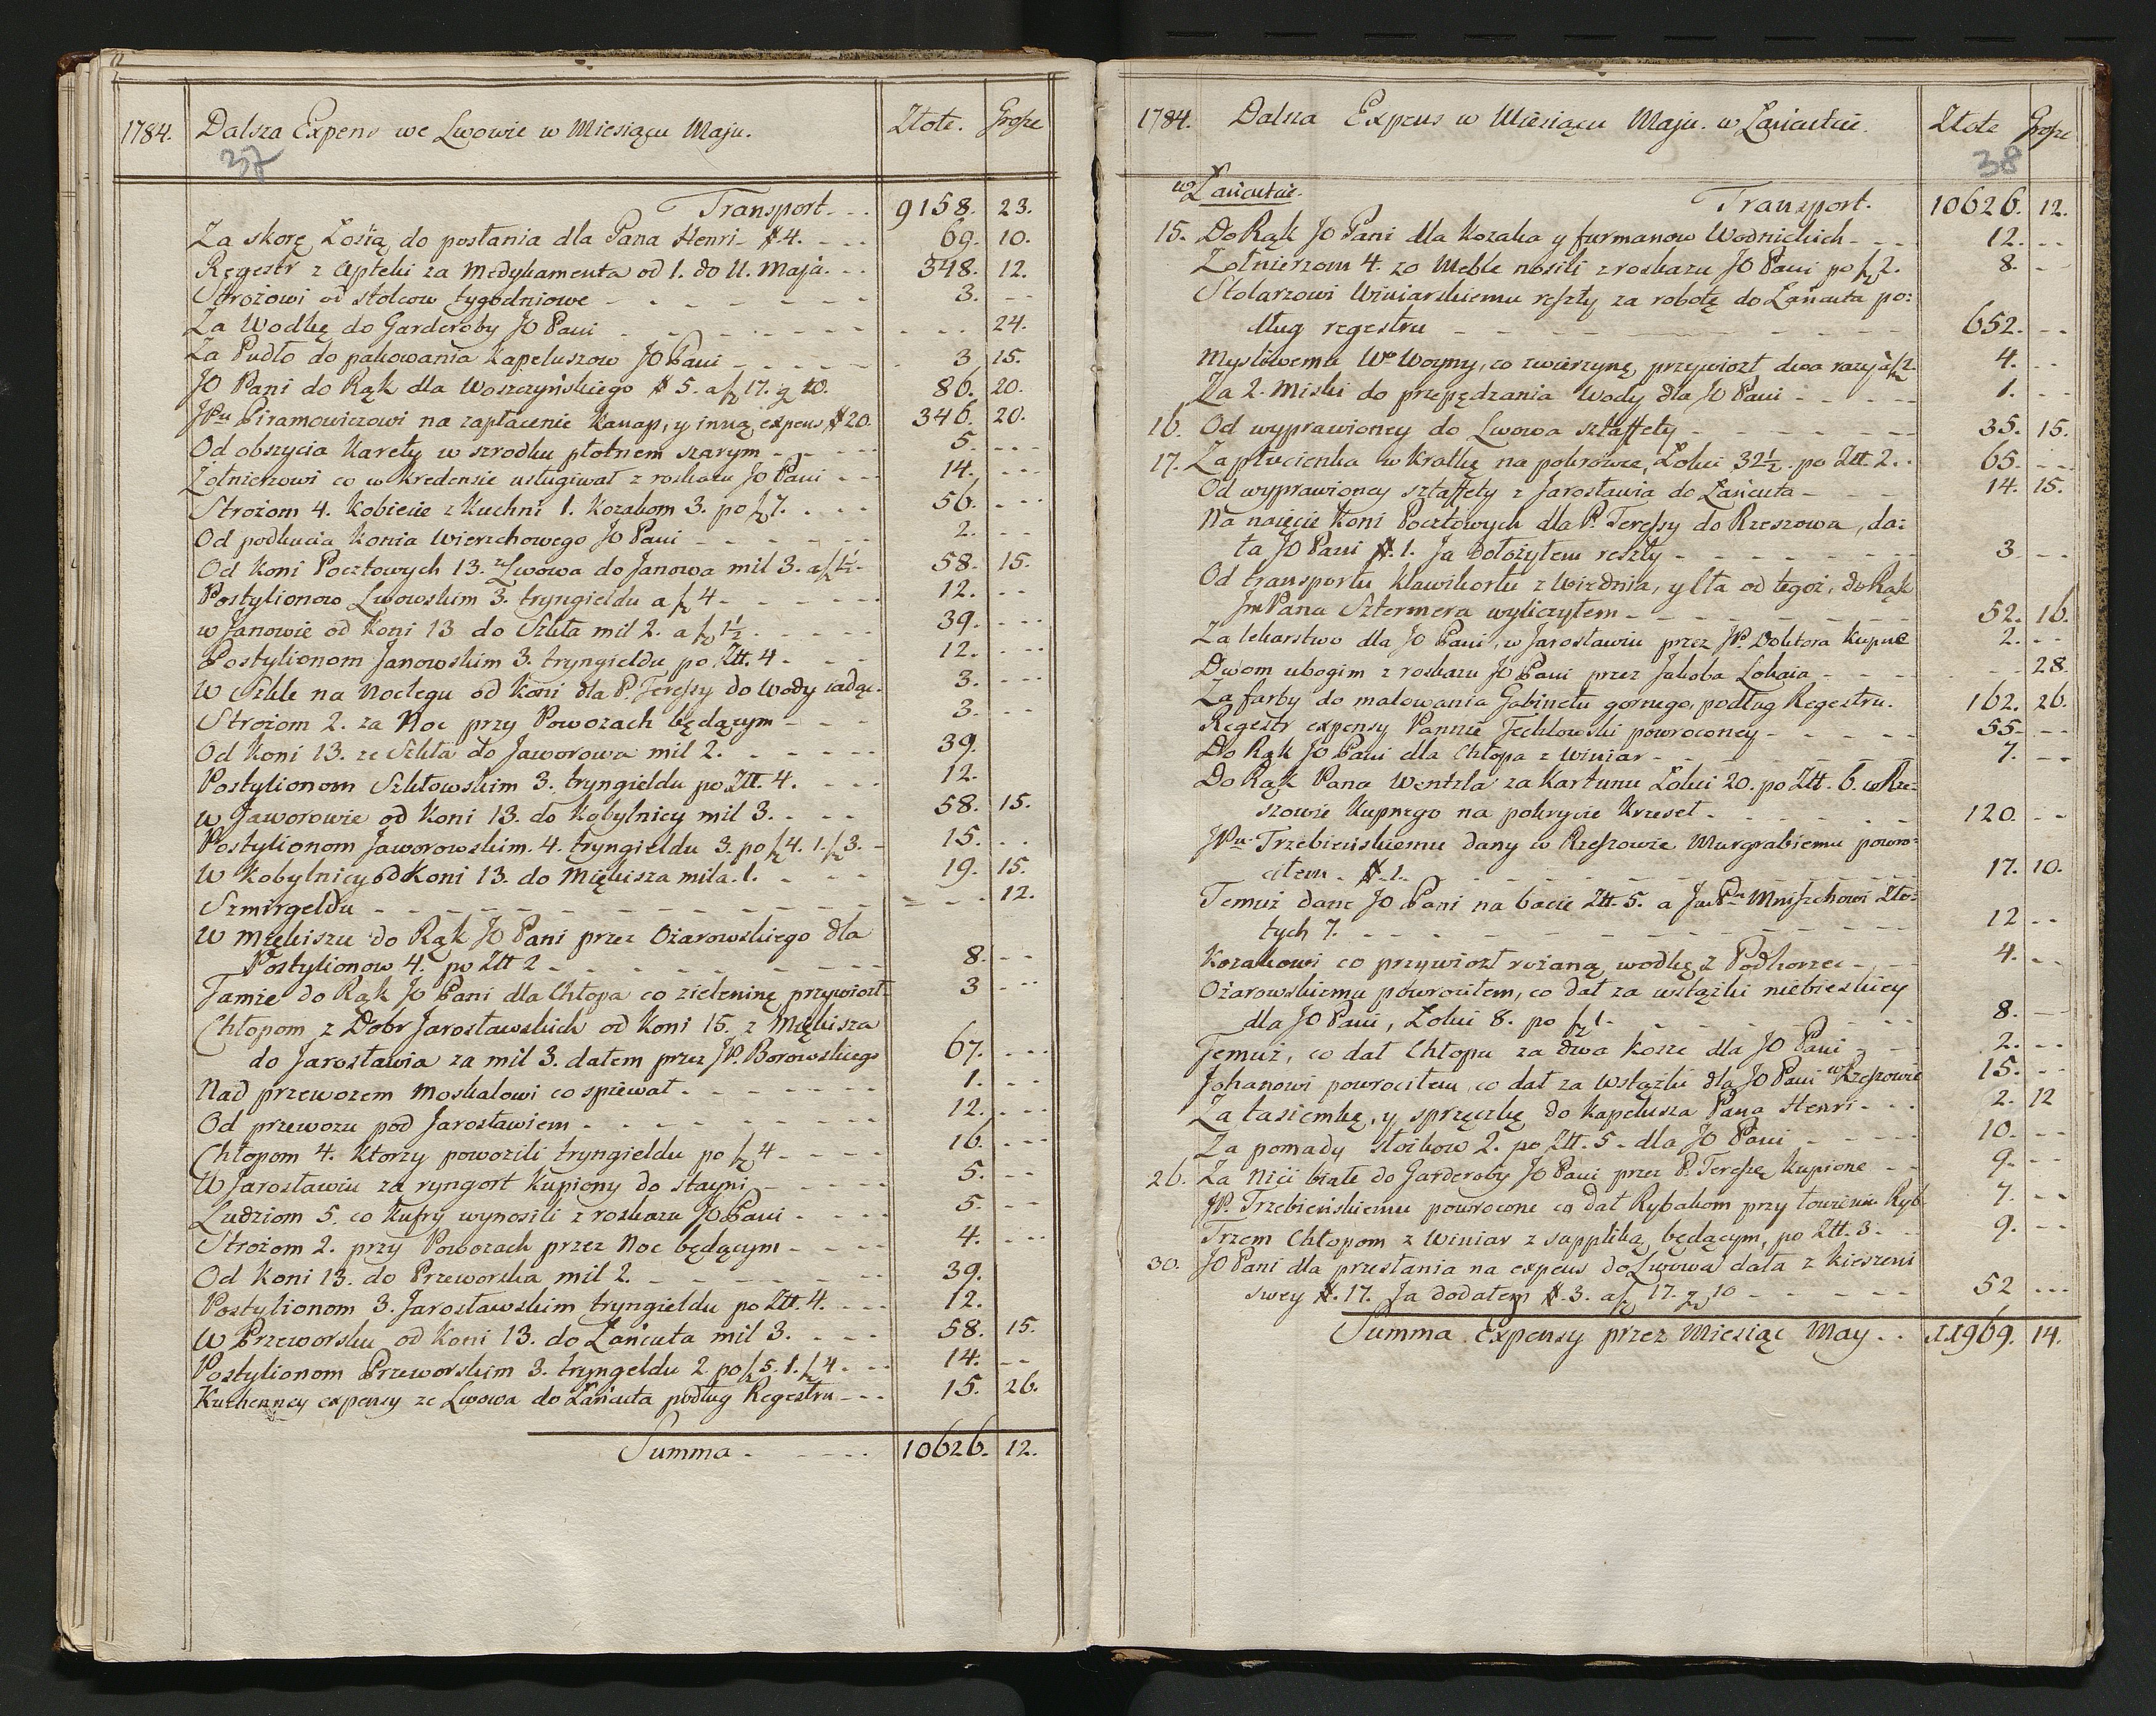 1784. Dalsza Expens we Lwowie w Miesiącu Maju. Złote. Grosze
37
Transport. 9158. 23.
Za skorę Łosią do posłania dla Pana Henri # 4. 69. 10.
Regestr z Apteki za Medykamenta od 1. do 11. Maja. 348. 12.
Strożowi od stolcow tygodniowe 3.
Za Wodkę do Garderoby JO Pani 24.
Za Pudło do pakowania Kapeluszow JO Pani 3 15.
JO Pani do Rąk dla Woszczyńskiego # 5. a fl 17. g 10. 86. 20.
JPu Piramowiczowi na zapłacenie Kanap, y inną expens # 20. 346. 20.
Od obszycia Karety w szrodku płotnem szarym 5.
Żołnierzowi co w Kredensie usługiwał z roskazu JO Pani 14.
Strożom 4. Kobiecie z Kuchni 1. Kozakom 3. po fl 7. 56.
Od podkucia Konia Wierzchowego JO Pani 2.
Od Koni Pocztowych 13. ze Lwowa do Janowa mil 3. a fl 1½ 58. 15.
Postylionow Lwowskim 3. tryngieldu a fl 4 12.
w Janowie od Koni 13 do Szkła mil 2. a fl 1½ 39.
Postylionom Janowskim 3. tryngieldu po Ztt. 4 12.
W Szkle na Noclegu od Koni dla P. Teressy do Wody iadąc. 3.
Strożom 2. za Noc przy Powozach będącym 3.
Od Koni 13. ze Szkła do Jaworowa mil 2. 39.
Postylionom Szkłowskim 3. tryngieldu po Ztt. 4. 12.
w Jaworowie od Koni 13. do Kobylnicy mil 3. 58. 15.
Postylionom Jaworowskim. 4. tryngieldu 3. po fl 4. 1. fl 3. 15.
W Kobylnicy od Koni 13. do Miękisza mila. 1. 19. 15.
Szmirgeldu 12.
W Miękiszu do Rąk JO Pani przez Ożarowskiego dla
Postylionow 4. po Ztt 2 8.
Tamże do Rąk JO Pani dla Chłopa co zieleninę przywiozł 3
Chłopom z Dobr Jarosławskich od Koni 15. z Miękisza
do Jarosławia za mil 3. dałem przez JP. Borowskiego 67.
Nad przewozem Moskalowi co spiewał 1.
Od przewozu pod Jarosławiem 12.
Chłopom 4. Ktorzy powozili tryngieldu po fl 4 16.
W Jarosławiu za ryngort Kupiony do stayni 5.
Ludziom 5. co Kufry wynosili z roskazu JO Pani 5.
Strożom 2. przy Powozach przez Noc będącym 4.
Od Koni 13. do Przeworska mil 2. 39.
Postylionom 3. Jarosławskim tryngieldu po Ztt. 4. 12.
W Przeworsku od Koni 13. do Łańcuta mil 3. 58. 15.
Postylionom Przeworskim 3. tryngeldu 2 po fl 5. 1. fl 4. 14.
Kuchenney expensy ze Lwowa do Łańcuta podług Regestru 15. 26.
Summa 10626. 12.
1784. Dalsza Expens w Miesiącu Maju. w Łańcucie. Złote Grosze
38
w Łańcucie.
Transport. 10626. 12.
15. Do Rąk JO Pani dla Kozaka y furmanow Wodnickich 12.
Żołnierzom 4. co Meble nosili z roskazu JO Pani po fl 2. 8.
Stolarzowi Winiarskiemu reszty za robotę do Łańcuta po=
dług regestru 652.
Mysliwemu We Woyny, co zwierzynę, przywiozł dwa razy à fl 2. 4.
Za 2. Miski do przepędzania Wody dla JO Pani 1.
16. Od wyprawioney do Lwowa sztaffety 35. 15.
17. Za płucienka w Kratkę na pokrowce, Łokci 32½. po Ztt. 2. 65.
Od wyprawioney sztaffety z Jarosławia do Łańcuta 14. 15.
Na naięcie Koni Pocztowych dla P. Teressy do Rzeszowa, da=
ła JO Pani #. 1. Ja dołożyłem reszty 3
Od transportu Klawikortu z Wiednia, y Cła od tegoż, do Rąk
Jm Pana Sztermera wyliczyłem 52. 16.
Za lekarstwo dla JO Pani, w Jarosławiu przez JP. Doktora Kupne 2.
Dwom ubogim z roskazu JO Pani przez Jakoba Lokaia 28.
Za farby do malowania Gabinetu gornego, podług Regestru. 162. 26.
Regestr expensy Pannie Techlowski powroconey 55
Do Rąk JO Pani dla Chłopa z Winiar 7.
Do Rąk Pana Wentzla za Kartunu Łokci 20. po Ztt. 6. w Rze=
szowie Kupnego na pokrycie Krzeseł 120.
JPu Trzebieńskiemu dany w Rzeszowie Murgrabiemu powro=
ciłem # 1. 17. 10.
Temuż dane JO Pani na bacie Ztt. 5. a JmPu Mniszchowi Zło=
tych 7. 12
Kozakowi co przywiozł rożaną wodkę z Podhorzec 4.
Ożarowskiemu powrociłem, co dał za wstążki niebieskiey
dla JO Pani, Łokci 8. po fl 1. 8.
Temuż, co dał Chłopu za dwa Kosze dla JO Pani 2.
Johanowi powrociłem, co dał za wstążki dla JO Pani w Rzeszowie 15.
Za tasiemkę, y sprzęczkę do Kapelusza Pana Henri 2. 12
Za pomady słoikow 2. po Ztt. 5 dla JO Pani 10.
26. Za Nici białe do Garderoby JO Pani przez P. Teressę Kupione 9.
JP. Trzebieńskiemu powrocone co dał Rybakom przy łowieniu Ryb 7.
Trzem Chłopom z Winiar z suppliką będącym, po Ztt. 3. 9.
30. JO Pani dla przesłania na expens do Lwowa dała z Kieszeni
swey #. 17. Ja dodałem #. 3. a fl 17. g 10 52
Summa Expensy przez Miesiąc May 11969. 14.